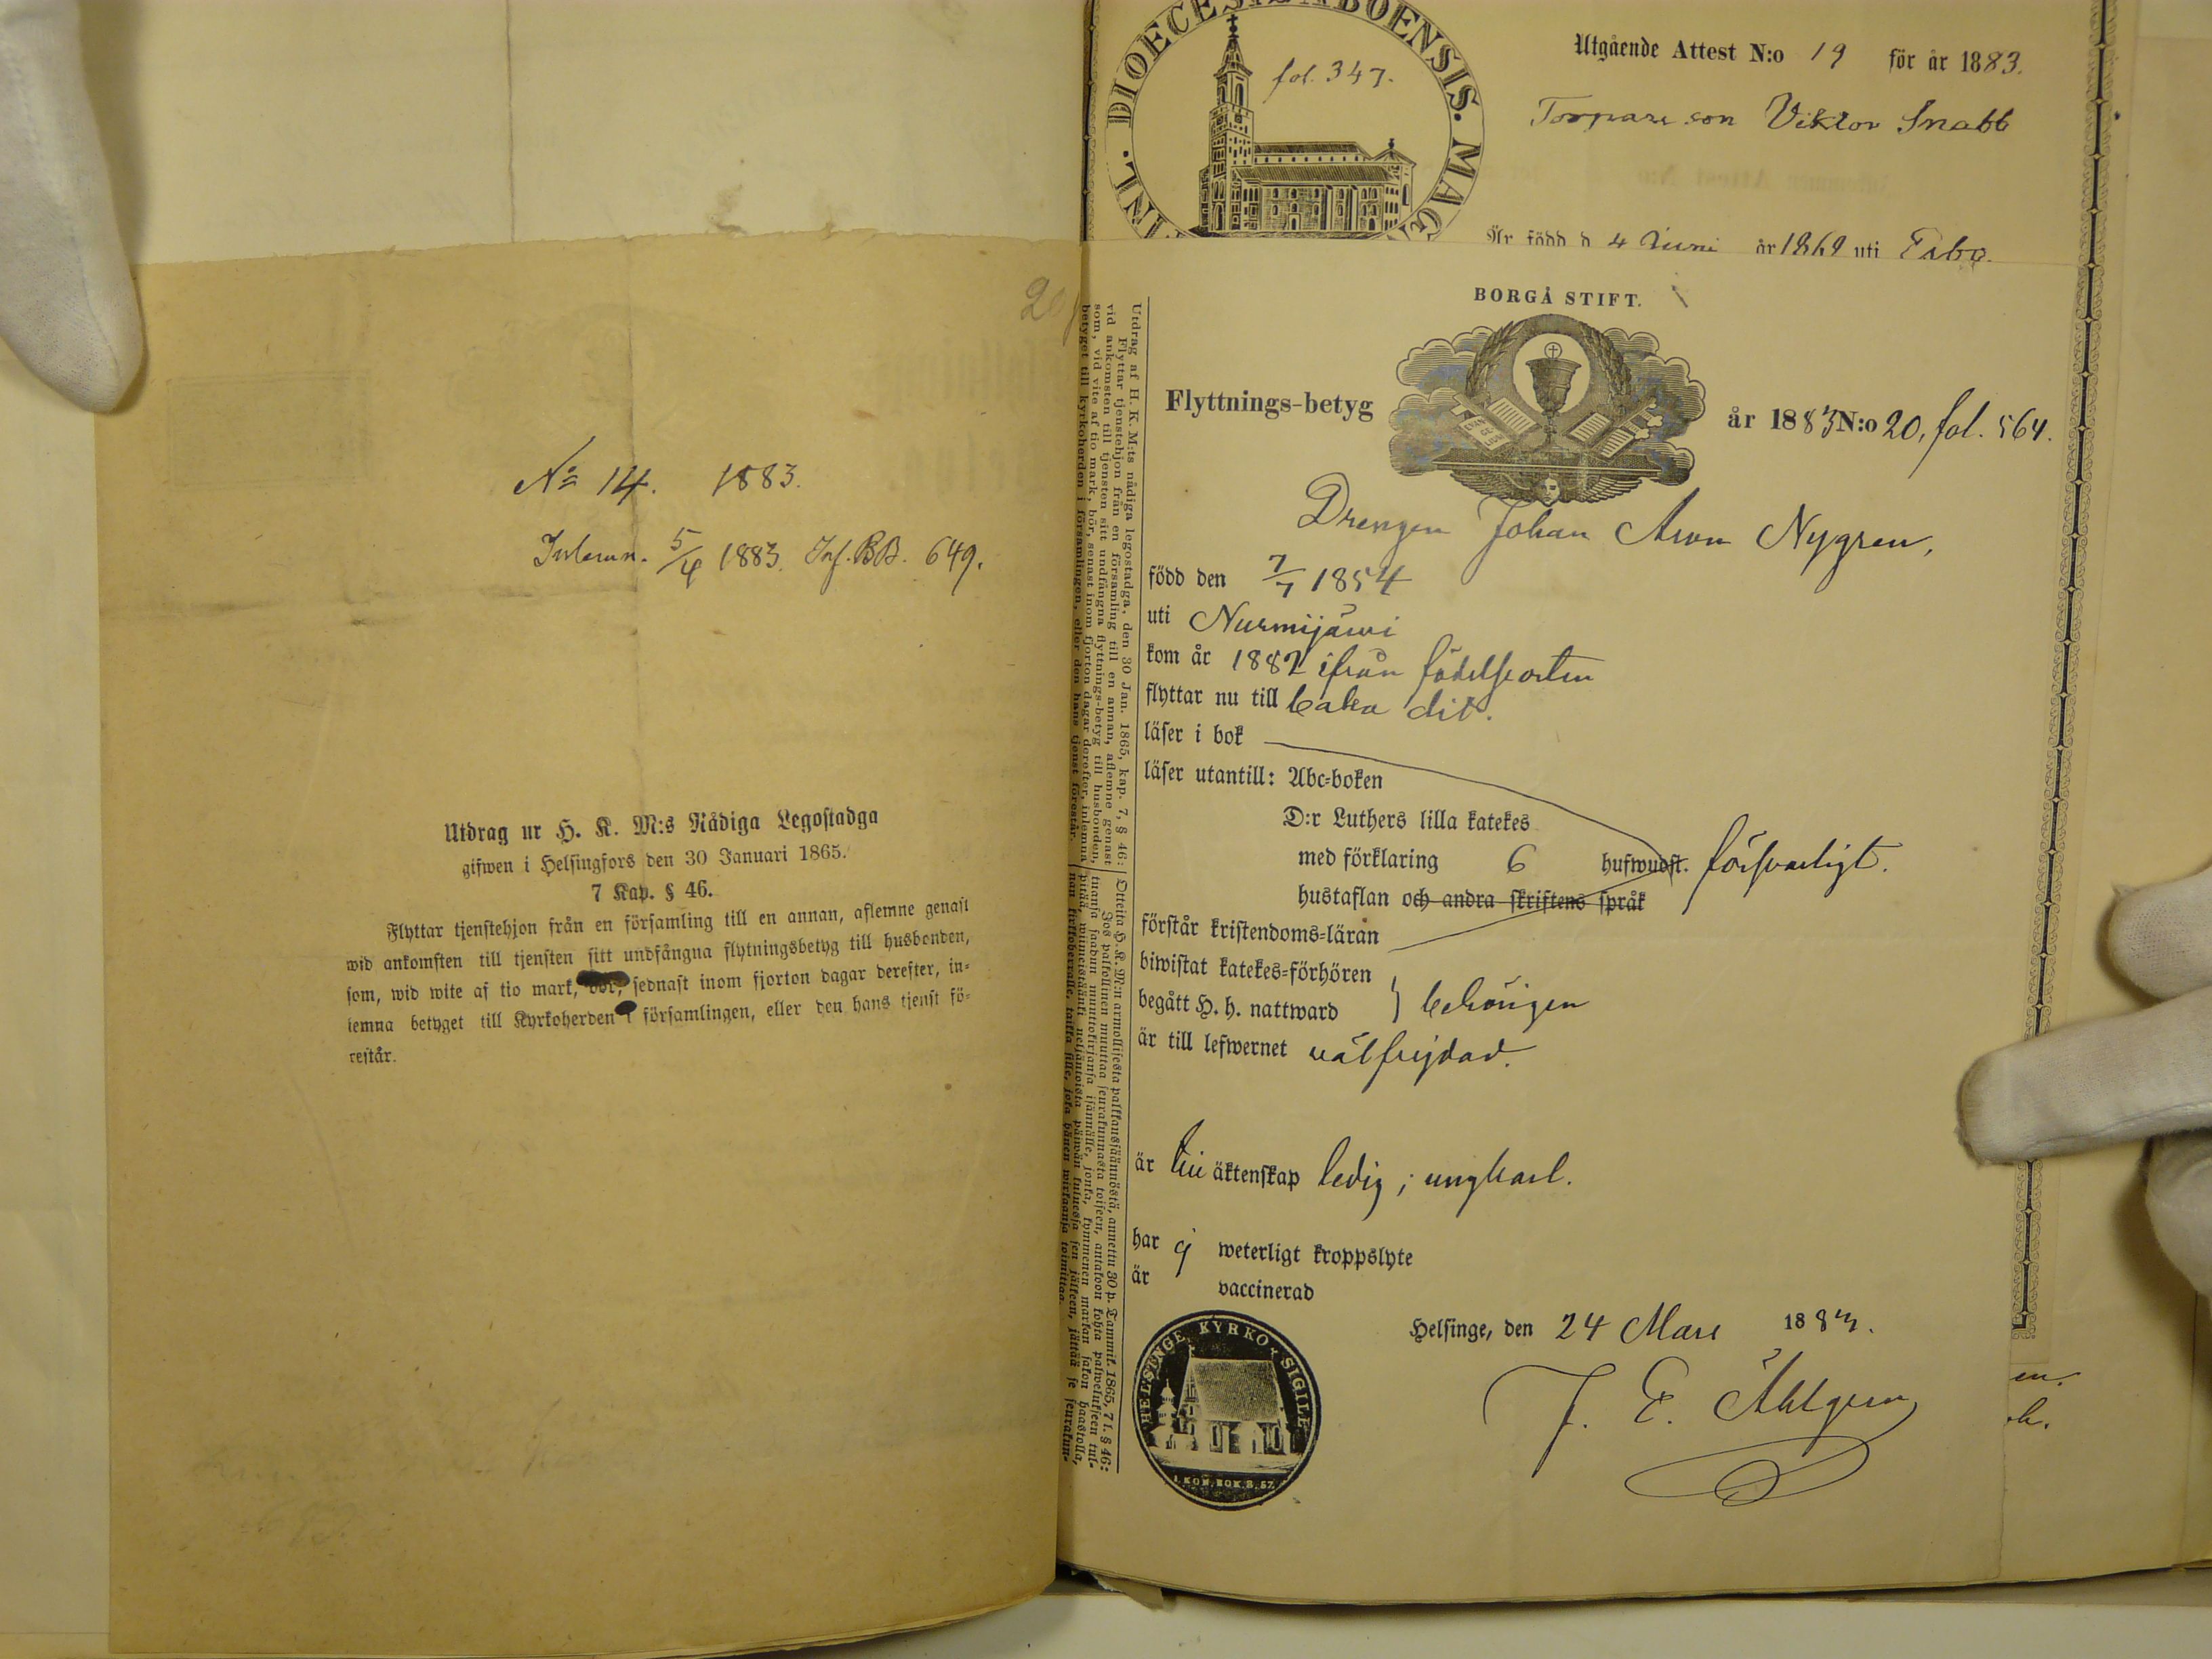 № 14. 1883.
Inlemn. 5/4 1883. Inf. BB. 649.
Utdrag ur H. K. M:s Nådiga Legostadga
gifwen i Helsingfors den 30 Januari 1865.
7 Kap. § 46.
Flyttar tjenstehjon från en församling till en annan, aflemne genast
wid ankomsten till tjensten sitt undfångna flytningsbetyg till husbonden,
som, wid wite af tio mark, bör, sednast inom fjorton dagar derefter, in-
lemna betyget till Kyrkoherden i församlingen, eller den hans tjenst fö-
restår.
DIOECESIS ABOENSIS. MAG
fol. 347.
Utgående Attest N:o 19 för år 1883.
Torpare son Viktor Snabb
Är född d. 4 Juni år 1869 uti Esbo.
Utdrag af H. K. M:ts nådiga legostadga, den 30 Jan. 1865, kap. 7, § 46:
Flyttar tjenstehjon från en församling till en annan, aflemne genast
vid ankomsten till tjensten sitt undfångna flyttnings-betyg till husbonden,
som, vid vite af tio mark, bör, senast inom fjorton dagar derefter, inlemna
betyget till kyrkoherden i församlingen, eller den hans tjenst förestår.
Otteita H. K. M:n armollisesta palkkaussäännöstä, annettu 30 p. Tammik. 1865, 7 l. § 46:
Jos palkollinen muuttaa seurakunnasta toiseen, antakoon kohta palwelukseen tul-
tuansa saadun muuttokirjansa isännälle, jonka, kymmenen markan sakon haastolla,
pitää, wiimeistäänki neljäntoista päiwän kuluessa sen jälkeen, jättää se seurakun-
nan kirkkoherralle, taikka sille, joka hänen wirkaansa toimittaa.
BORGÅ STIFT.
Flyttnings-betyg
EVAN
GE
LIUM
år 1883 N:o 20, fol. 564.
Drengen Johan Aron Nygren,
född den 7/7 1854
uti Nurmijärvi
kom år 1882 ifrån födelseorten
flyttar nu till baka dit.
läser i bok
läser utantill: Abc-boken
D:r Luthers lilla katekes
med förklaring 6 hufwudst. försvarligt.
hustaflan och andra skriftens språk
förstår kristendoms-läran
biwistat katekes-förhören
begått H. h. nattward } behörigen
är till lefwernet välfrejdad.
är till äktenskap ledig; ungkarl.
har ej weterligt kroppslyte
är vaccinerad
Helsinge, den 24 Mars 1883.
J. E. Åhlgren
HELSINGE KYRKO SIGILL
1. KON. BOK. 8. 57.